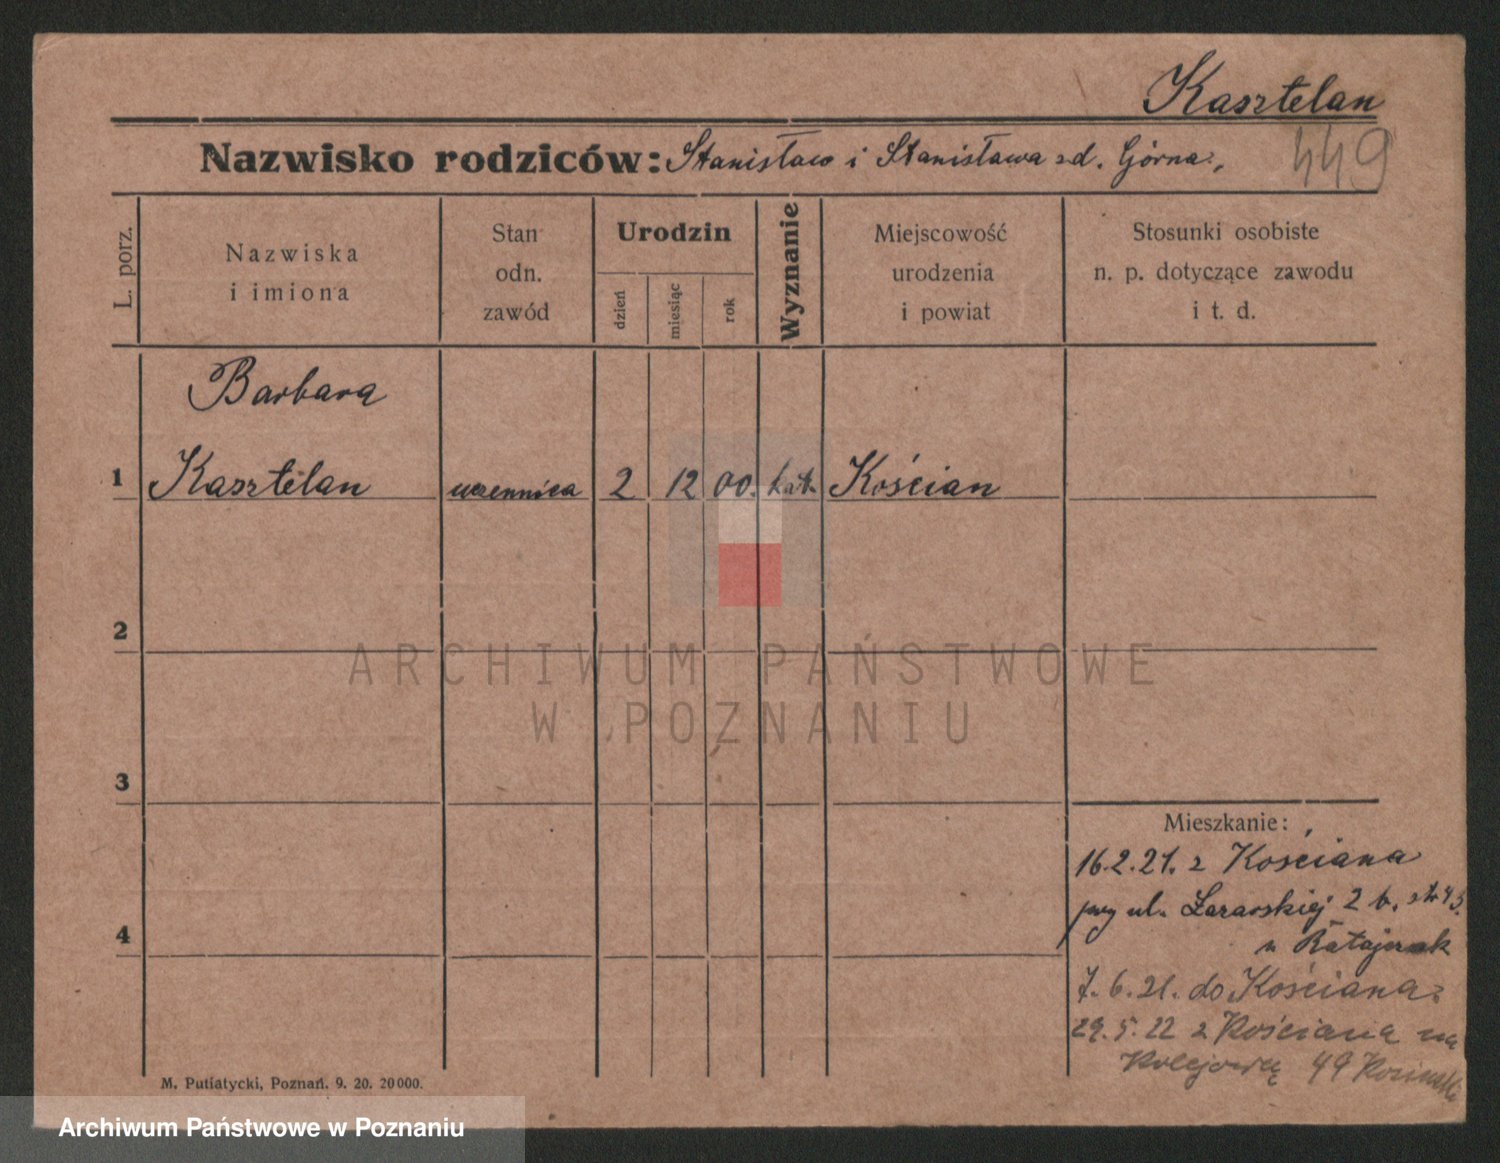 Kasztelan
449
Nazwisko rodziców: Stanisław i Stanisława zd. Górna,
L. porz.
Nazwiska
i imiona
Stan
odn.
zawód
Urodzin
dzień
miesiąc
rok
Wyznanie
Miejscowość
urodzenia
i powiat
Stosunki osobiste
n. p. dotyczące zawodu
i t. d.
Barbara
1 Kasztelan uczennica 2 12 00. kat. Kościan
2
3
4
ARCHIWUM PAŃSTWOWE
W POZNANIU
Mieszkanie:
16.2.21. z Kościana
przy ul. 2 b.
u Ratajczak
7.6.21. do Kościana
29.5.22 z Kościana na
Kolejową 49
M. Putiatycki, Poznań. 9. 20. 20000.
Archiwum Państwowe w Poznaniu